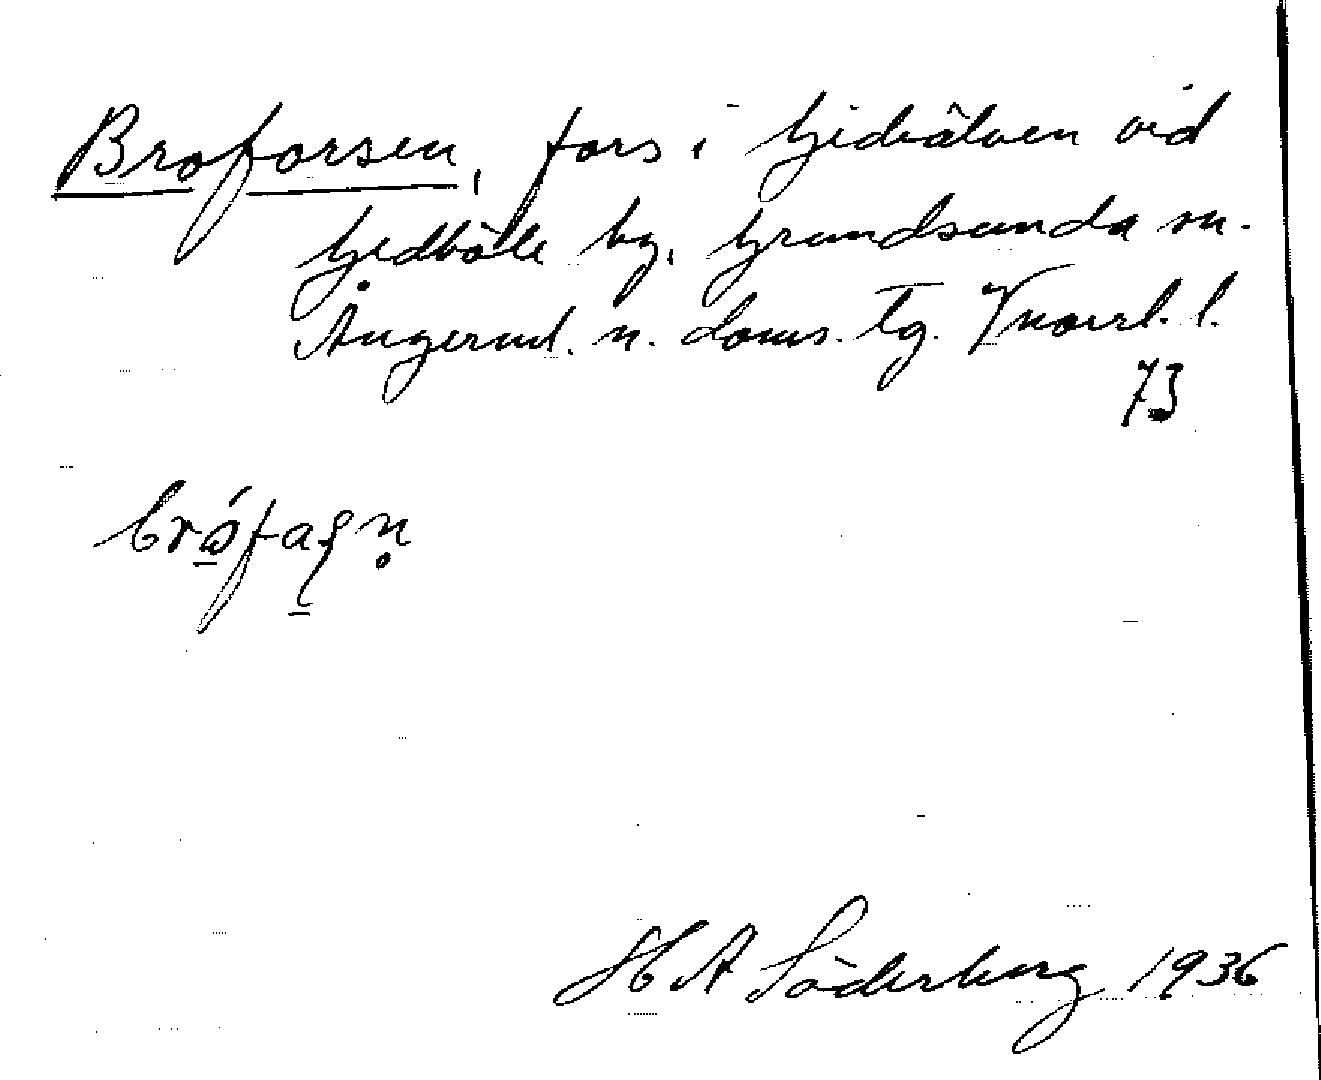 Broforsen, fors i Gideälven vid
Gidböle by, Grundsunda sn.
Ångerml. n. doms. tg. Vnorrl. l.
73
H A Söderberg 1936